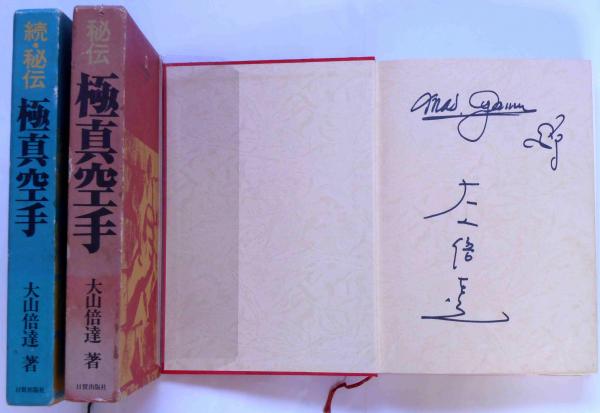 続・秘伝
極真空手
大山倍達 著
日貿出版社
秘伝
極真空手
大山倍達 著
日貿出版社
Mas. Oyama
大山倍達